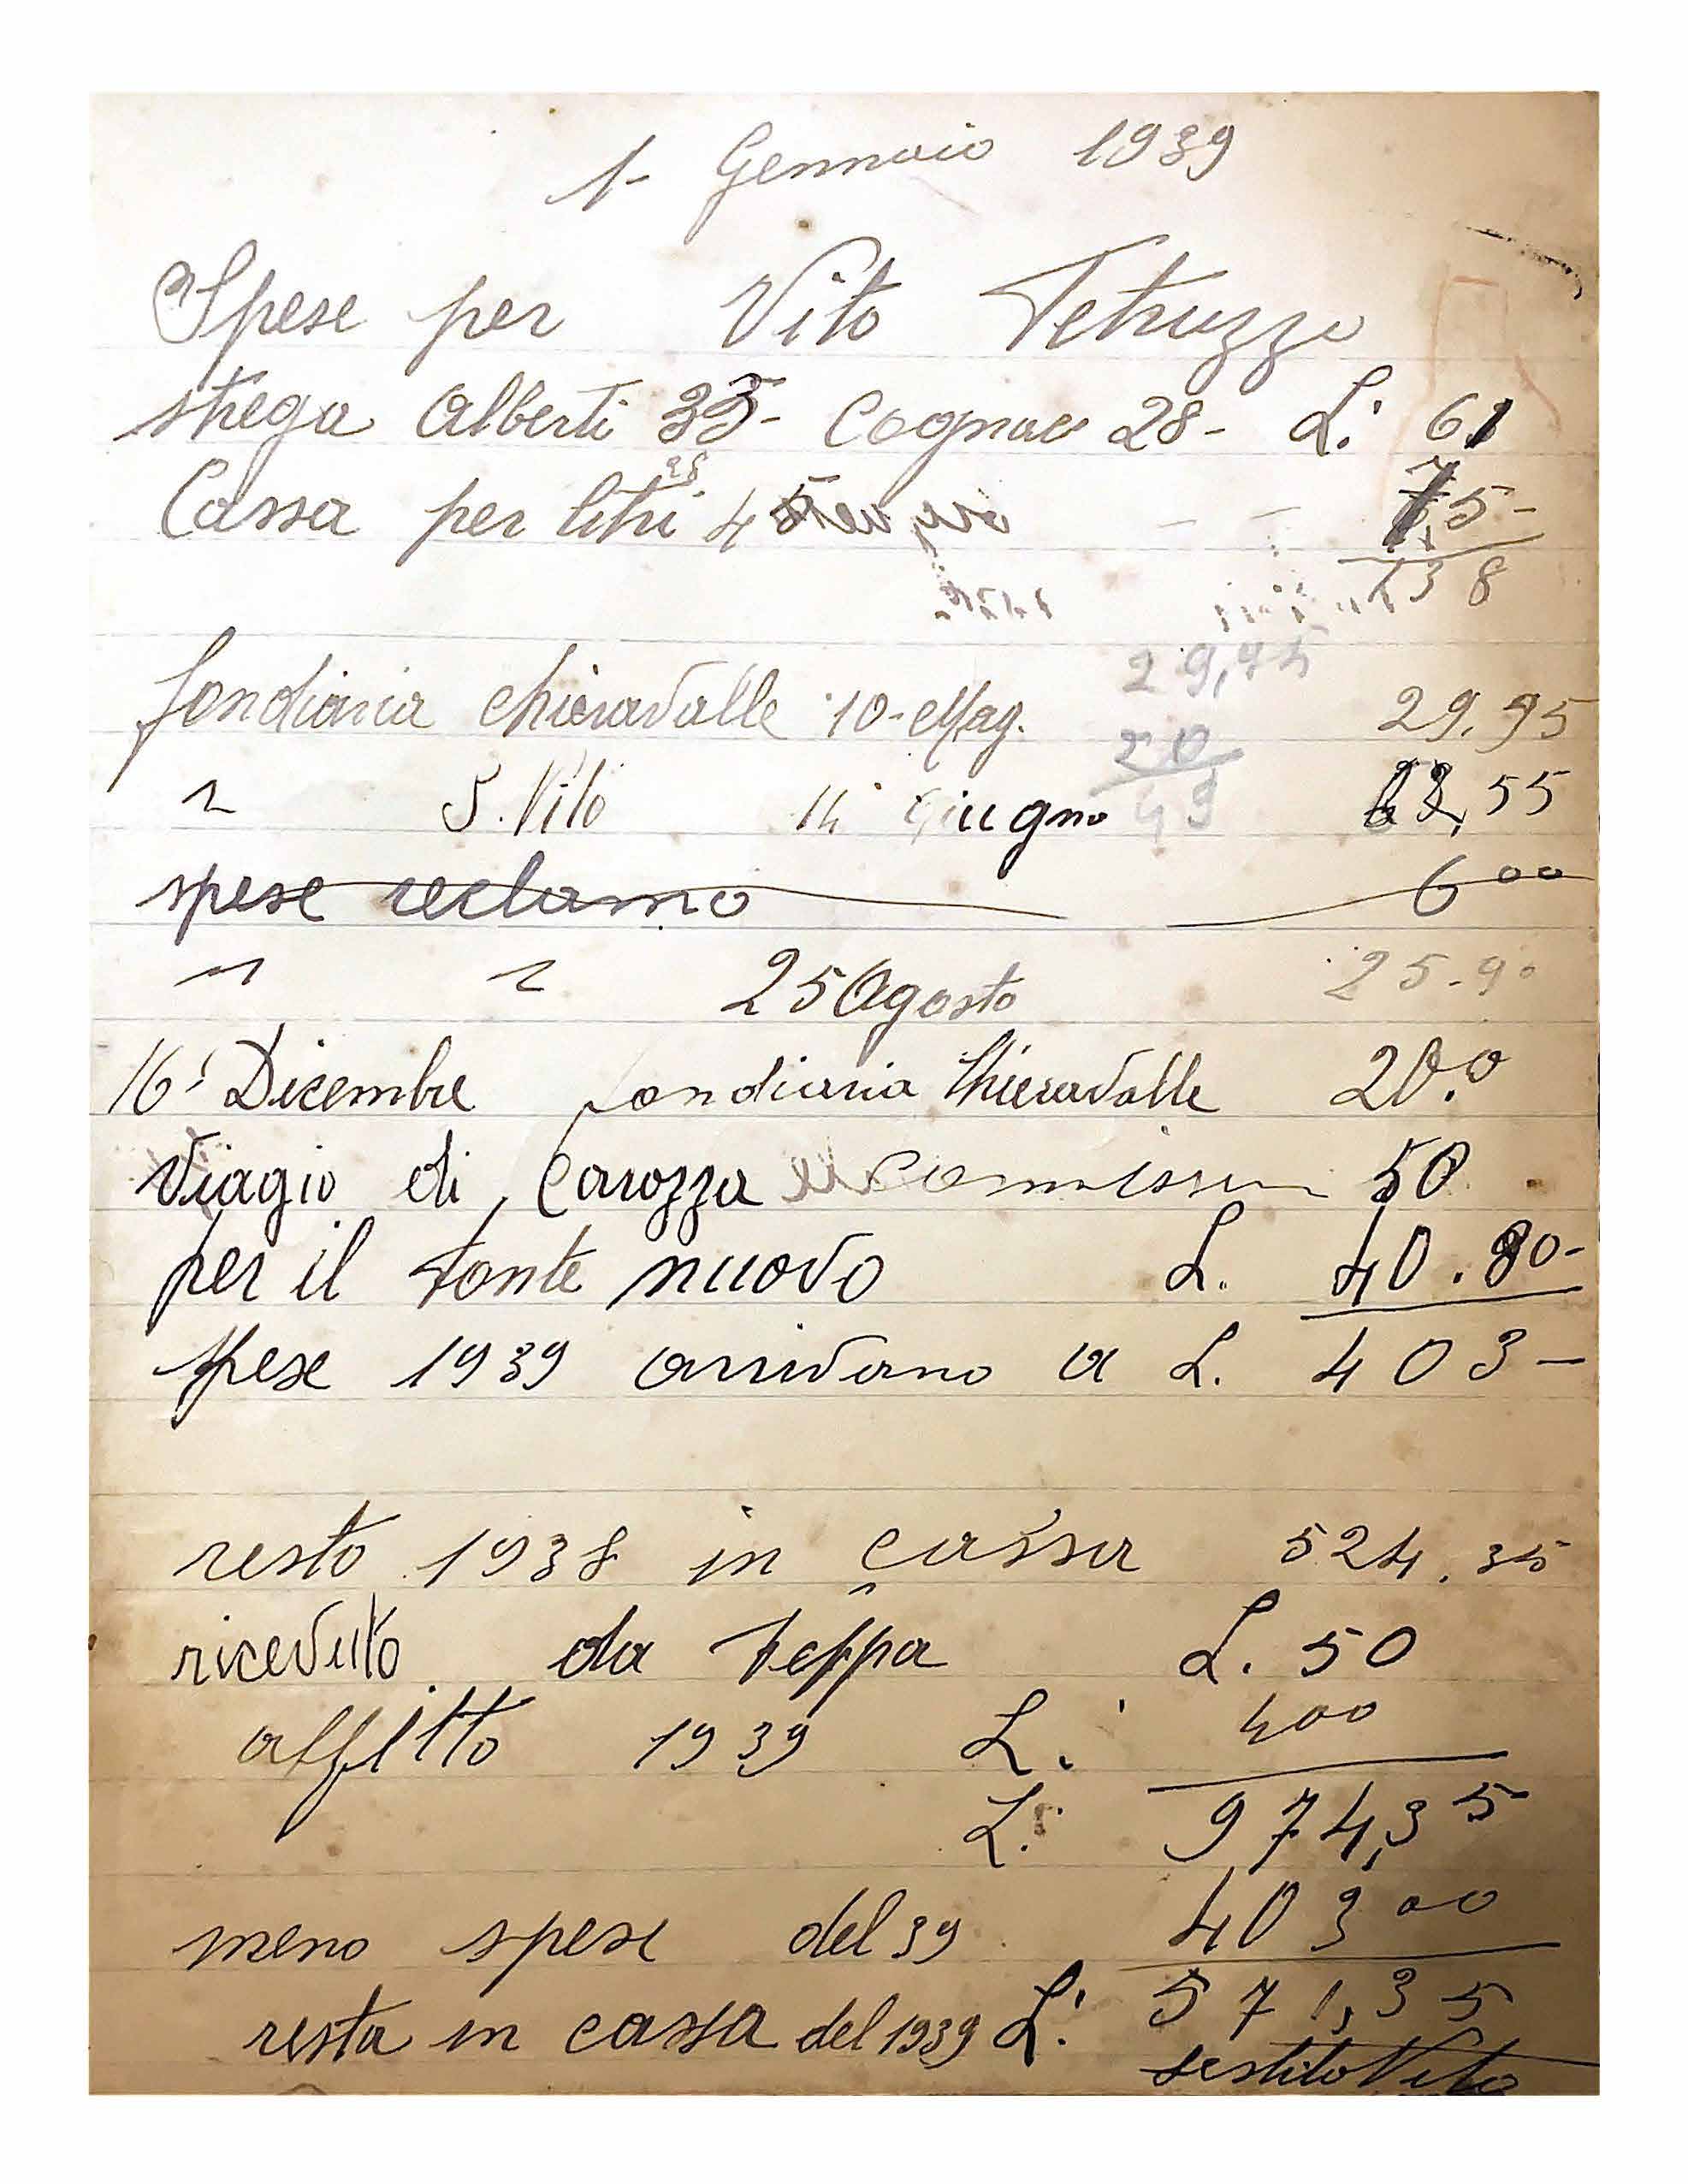 1- Gennaio 1939
Spese per Vito Tetruzzo
strega Alberti 35- Cognac 28- L: 61
Cassa per litri 4 75-
138
29,95
fondiaria Chieravalle 10-Mag. 29.95
20
" S. Vito 14 Giugno ,55
49
spese reclamo 6 00
" " 25 Agosto 25-90
16 Dicembre fondiaria Chieravalle 20.0
Viagio di Carozza commissu 50
per il fonte nuovo L. 40.80-
spese 1939 arrivano a L. 403-
resto 1938 in cassa 524.35
ricevuto da Peppa L. 50
affitto 1939 L. 400
L: 974,35
meno spese del 39 403 00
resta in cassa del 1939 L: 571,35
sestito Vito